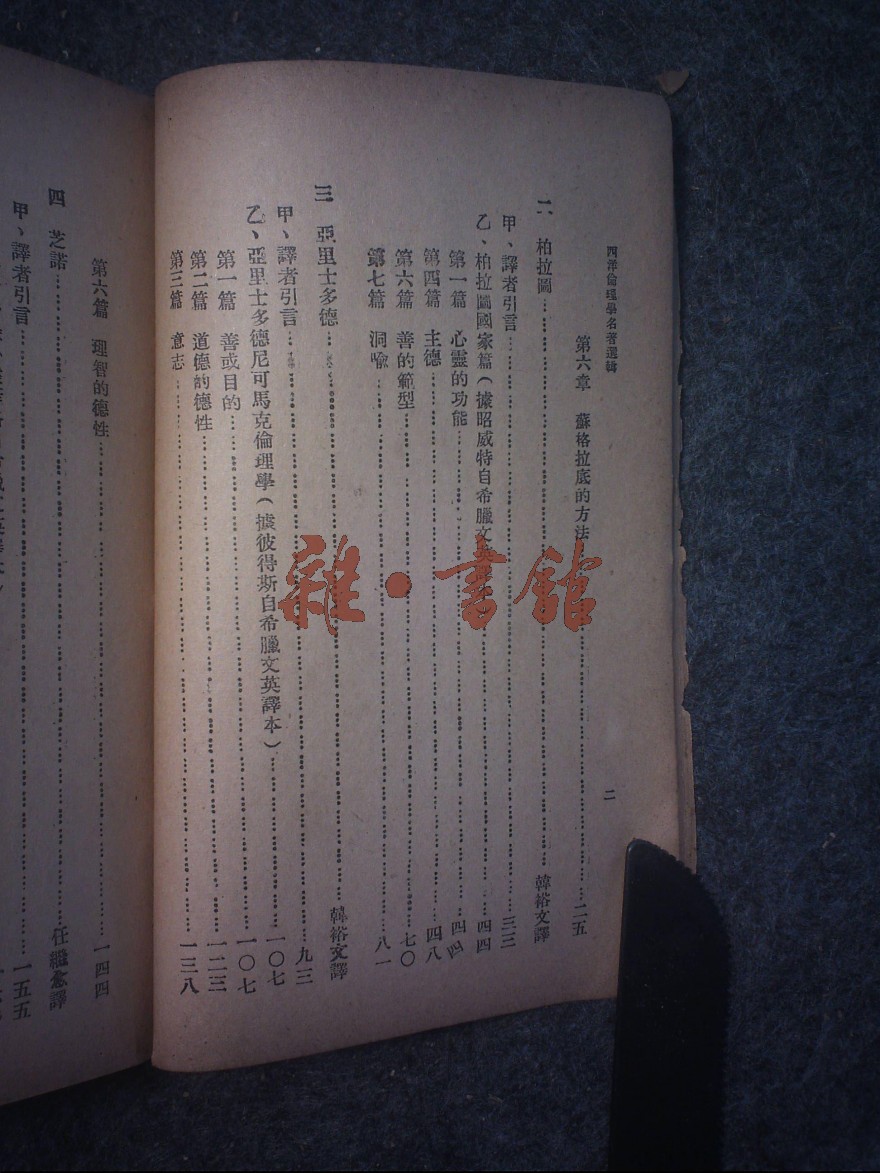 西洋倫理學名著選輯
二
第六章 蘇格拉底的方法……二五
二 柏拉圖……韓裕文譯
甲、譯者引言……三三
乙、柏拉圖國家篇（據昭威特自希臘文英……四四
第一篇 心靈的功能……四四
第四篇 主德……四八
第六篇 善的範型……七〇
第七篇 洞喻……八一
三 亞里士多德……韓裕文譯
甲、譯者引言……九三
乙、亞里士多德尼可馬克倫理學（據彼得斯自希臘文英譯本）……一〇七
第一篇 善或目的……一〇七
第二篇 道德的德性……一二三
第三篇 意志……一三八
第六篇 理智的德性……一四四
四 芝諾……任繼愈譯
甲、譯者引言……一五五
雜·書館